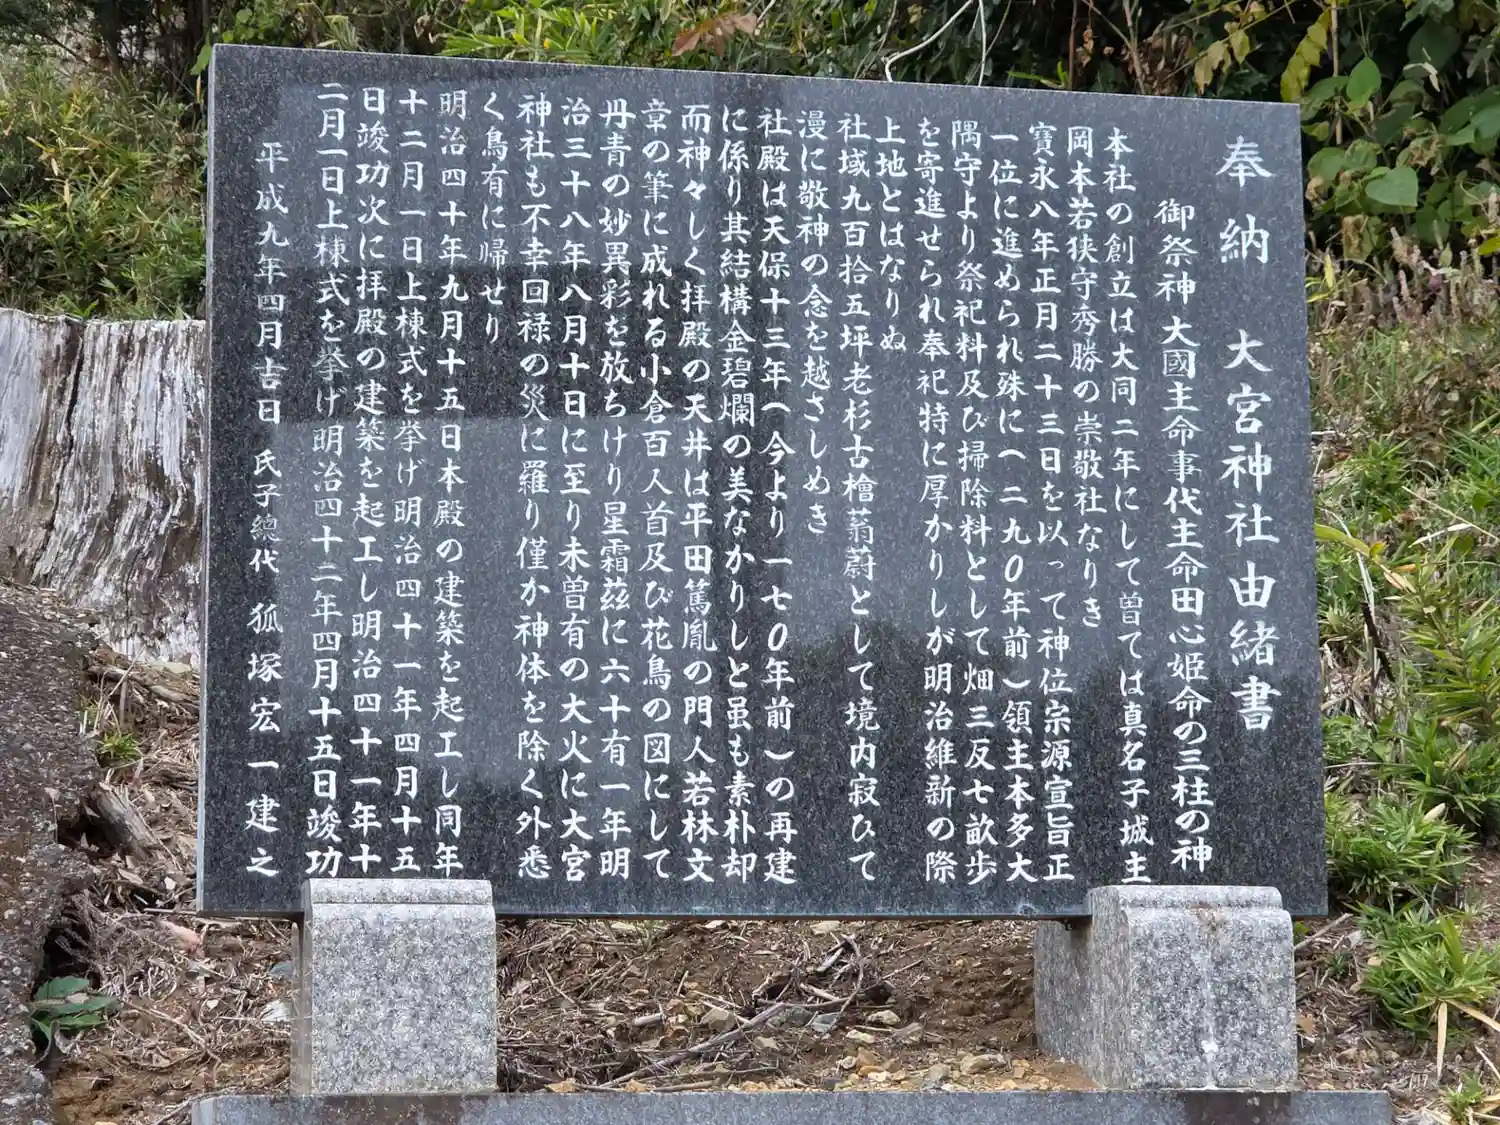 奉納 大宮神社由緒書
御祭神大國主命事代主命田心姫命の三柱の神
本社の創立は大同二年にして曽ては真名子城主
岡本若狭守秀勝の崇敬社なりき
寳永八年正月二十三日を以って神位宗源宣旨正
一位に進められ殊に(二九0年前)領主本多大
隅守より祭祀料及び掃除料として畑三反七畝歩
を寄進せられ奉祀特に厚かりしが明治維新の際
上地とはなりぬ
社域九百拾五坪老杉古檜蓊蔚として境内寂ひて
漫に敬神の念を越さしめき
社殿は天保十三年(今より一七0年前)の再建
に係り其結構金碧爛の美なかりしと虽も素朴却
而神々しく拝殿の天井は平田篤胤の門人若林文
章の筆に成れる小倉百人首及び花鳥の図にして
丹青の妙異彩を放ちけり星霜茲に六十有一年明
治三十八年八月十日に至り未曽有の大火に大宮
神社も不幸回禄の災に羅り僅か神体を除く外悉
く鳥有に帰せり
明治四十年九月十五日本殿の建築を起工し同年
十二月一日上棟式を挙げ明治四十一年四月十五
日竣功次に拝殿の建築を起工し明治四十一年十
二月一日上棟式を挙げ明治四十二年四月十五日竣功
平成九年四月吉日 氏子總代 狐塚宏一建之